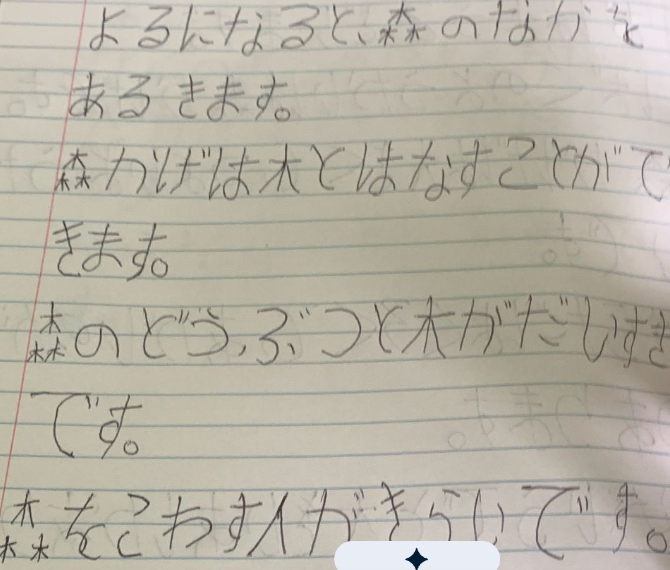 よるになると、森のなかを
あるきます。
森かげは木とはなすことがで
きます。
森のどうぶつと木がだいすき
です。
森をこわす人がきらいです。